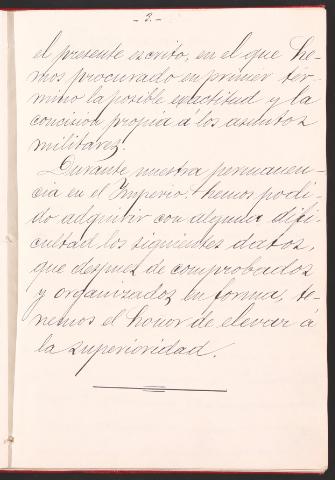 - 2. -
el presente escrito, en el que he-
mos procurado en primer tér-
mino la posible exactitud y la
concisión propia á los asuntos
militares.
Durante nuestra permanen-
cia en el Imperio hemos podi-
do adquirir con alguna difi-
cultad los siguientes datos,
que despues de comprobados
y organizados en forma, te-
nemos el honor de elevar á
la superioridad.